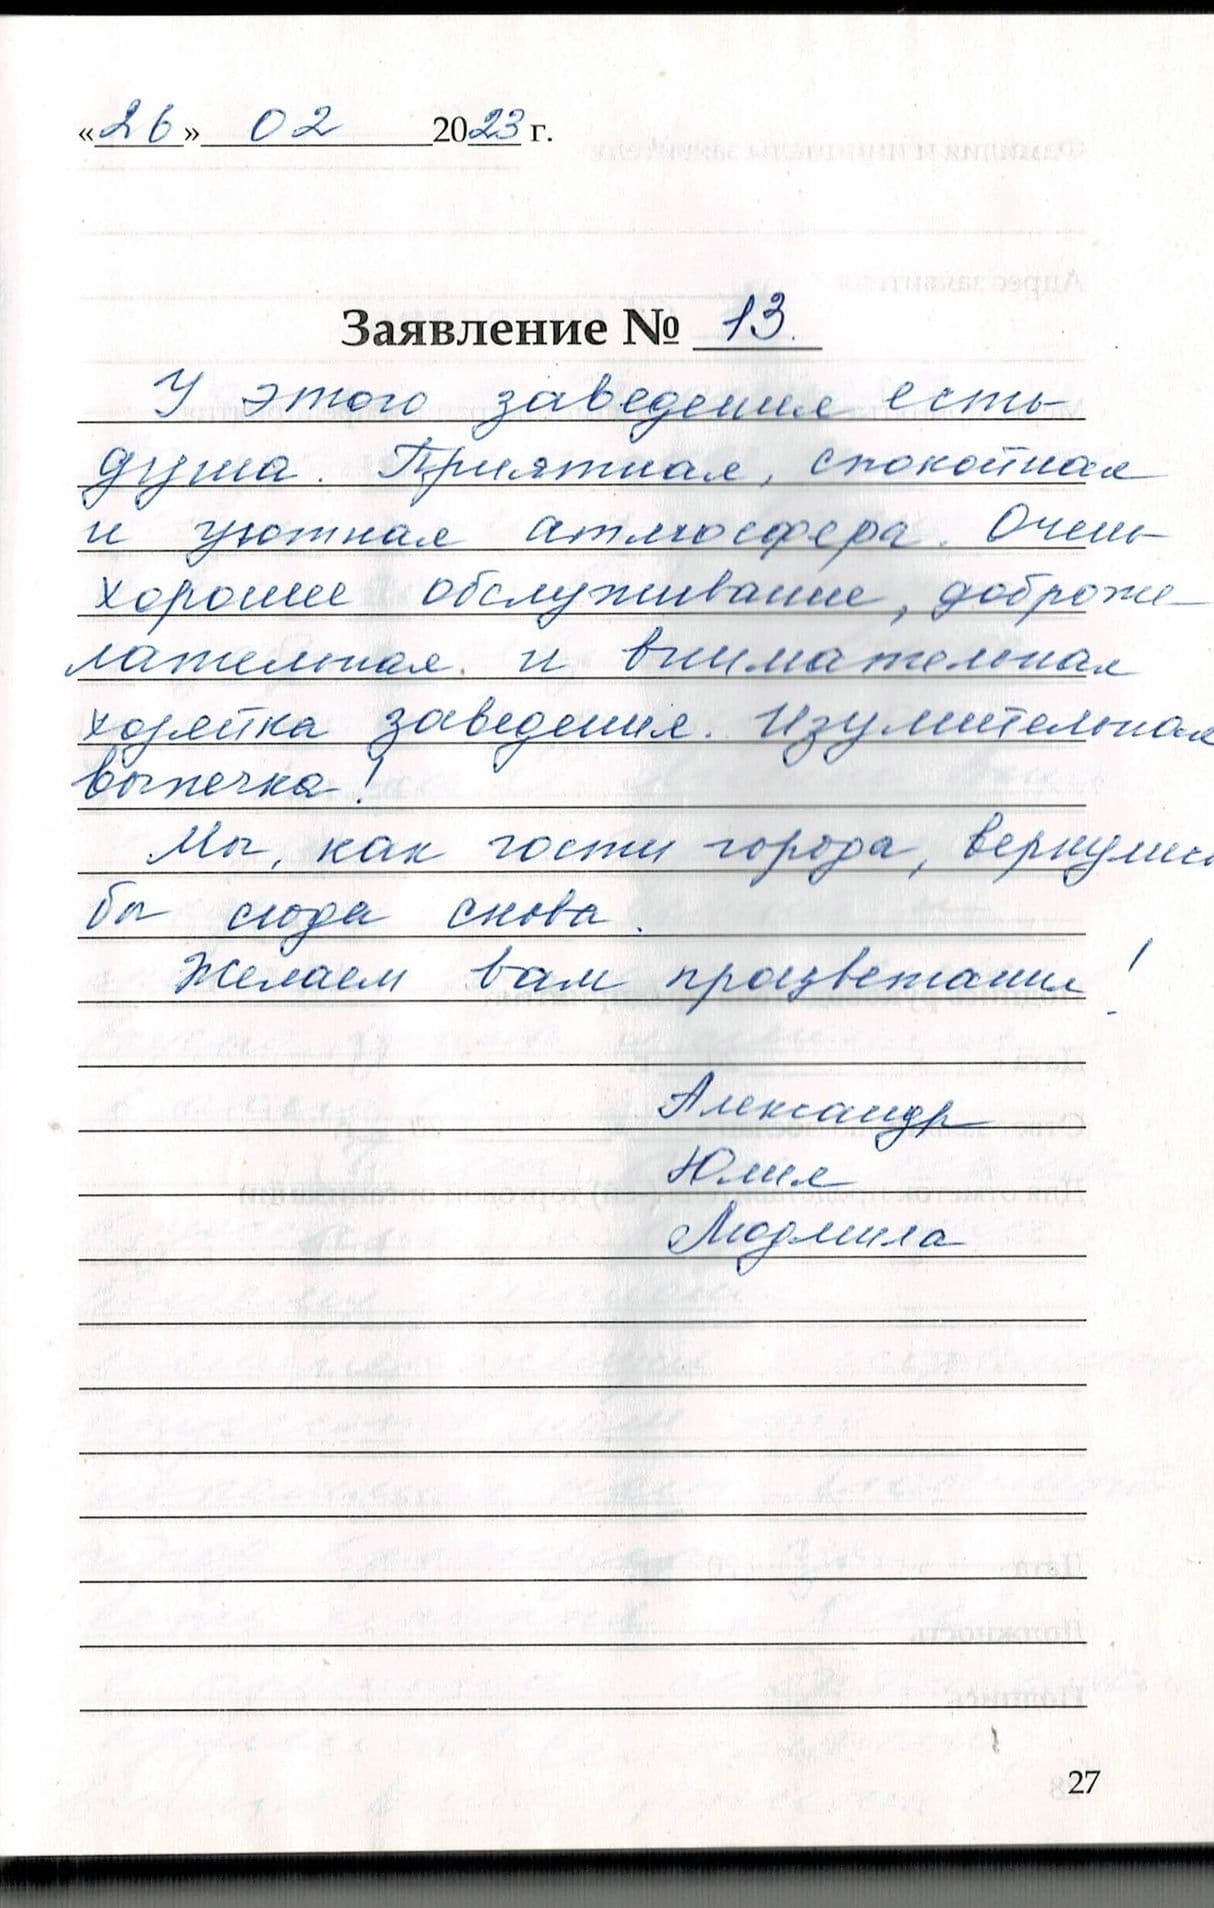 «26» 02 2023 г.
Заявление № 13.
У этого заведения есть
душа. Приятная, спокойная
и уютная атмосфера. Очень
хорошее обслуживание, доброже-
лательная и внимательная
хозяйка заведения. Изумительная
выпечка!
Мы, как гости города, вернулись
бы сюда снова.
Желаем вам процветания!
Александр
Юлия
Людмила
27